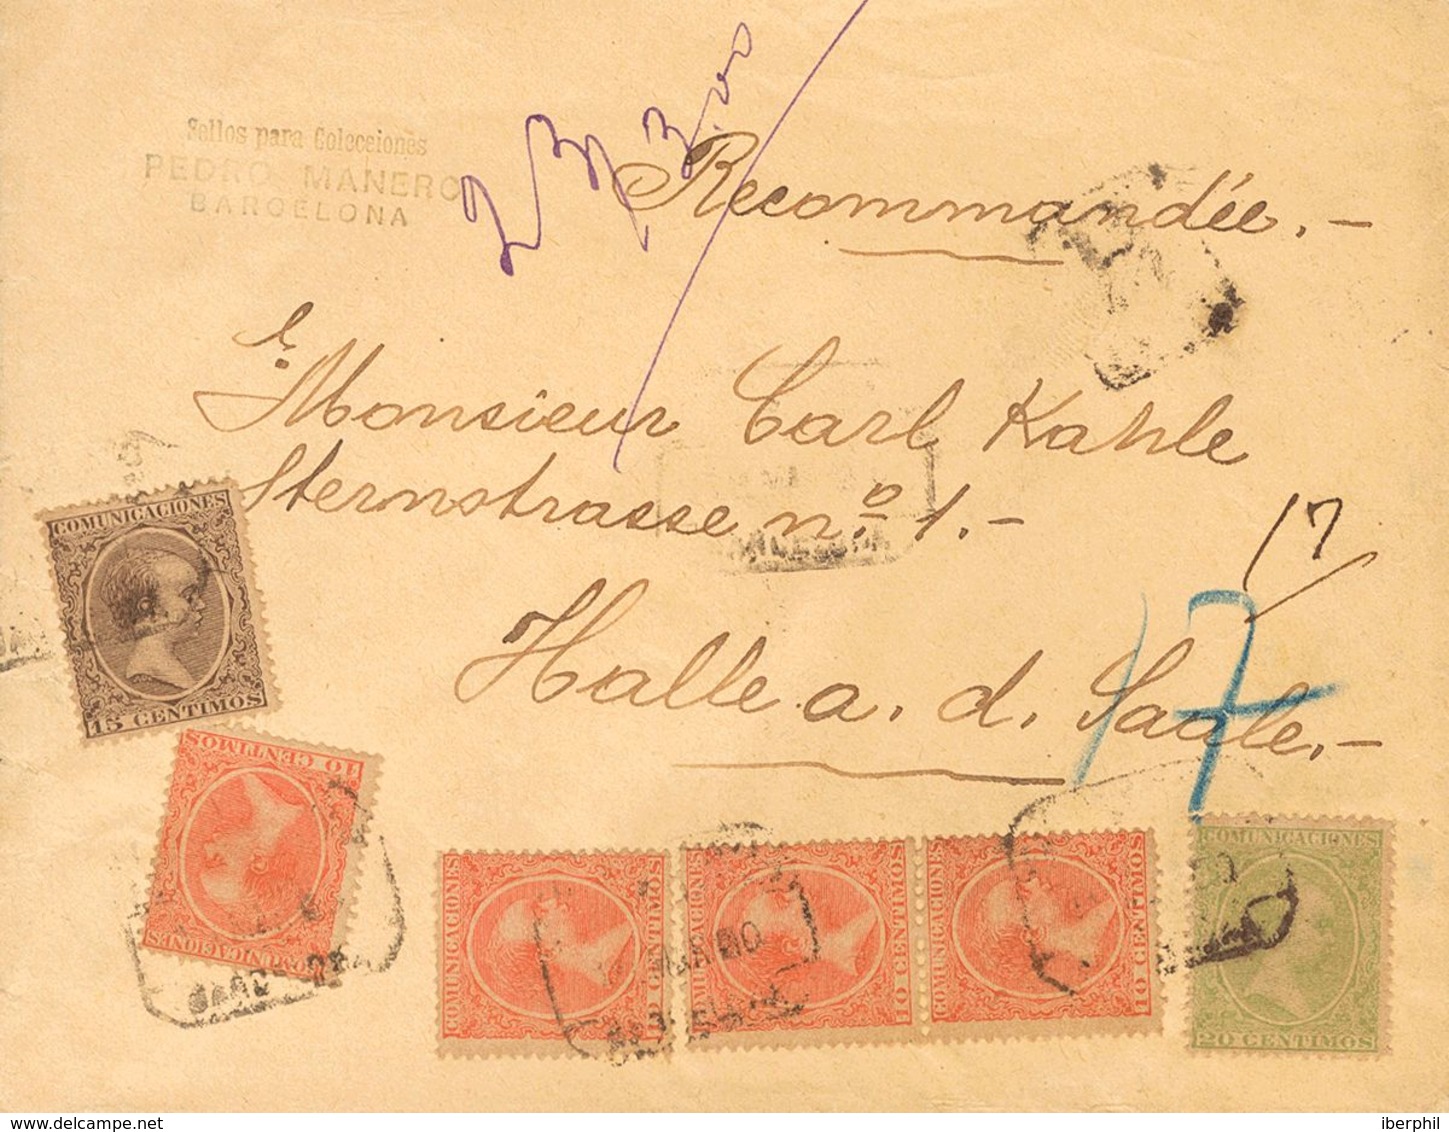 Sellos para Colecciones
PEDRO MANERO
BARCELONA
Recommandée.-
Monsieur Carl Kahle
Sternstrasse nº 1.-
Halle a. d. Saale.-
17
17
COMUNICACIONES
15 CENTIMOS
10 CENTIMOS
COMUNICACIONES
COMUNICACIONES
10 CENTIMOS
COMUNICACIONES
10 CENTIMOS
COMUNICACIONES
10 CENTIMOS
COMUNICACIONES
20 CENTIMOS
delcampe.net
iberphil